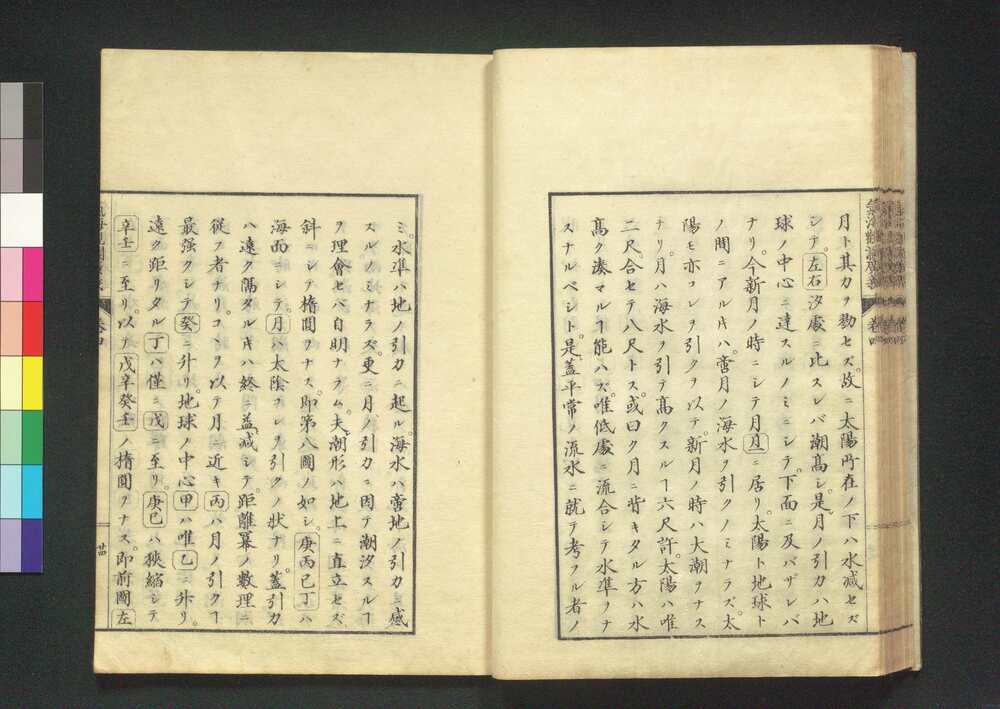 月ト其カヲ勠セズ。故ニ太陽所在ノ下ハ水减セズ
シテ。左右汐處ニ比スレバ潮髙シ。是。月ノ引力ハ地
球ノ中心ニ達スルノミニシテ。下面ニ及バザレバ
ナリ。今新月ノ時ニシテ月ニ居リ。太陽ト地球ト
ノ間ニアルキハ。啻月ノ海水ヲ引クノミナラズ。太
陽モ亦コレヲ引クヲ以テ。新月ノ時ハ大潮ヲナス
ナリ。月ハ海水ヲ引テ髙クスルヿ六尺許。太陽ハ唯
二尺。合セテ八尺トス。或曰ク月ニ背キタル方ハ水
髙ク湊マルヿ能ハズ。唯低處ニ流合シテ水準ヲナ
スナルベシト。是。蓋平常ノ流水ニ就テ考フル者ノ
ミ。水準ハ地ノ引力ニ起ル。海水ハ啻地ノ引力ニ感
スルノミナラズ。更ニ月ノ引力ニ因テ潮汐スルヿ
ヲ理會セバ自明ナラム。夫。潮形ハ地上ニ直立セズ
斜ニシテ楕圓ヲナス。即第八圖ノ如シ。庚丙已丁ハ
海面ニシテ。月ハ太陰コレヲ引クノ狀ナリ。蓋引力
ハ遠ク隔タルキハ終ニ益减シテ。距離冪ノ數理ニ
從フ者ナリ。コヽヲ以テ月ニ近キ丙ハ月ノ引クヿ
最强クシテ癸ニ升リ。地球ノ中心甲ハ唯乙ニ升リ。
遠ク距リタル丁ハ僅ニ戊ニ至リ。庚已ハ狹縮シテ
辛壬ニ至リ。以テ戊辛癸壬ノ楕圓ヲナス。即前圖左
卷四
廿